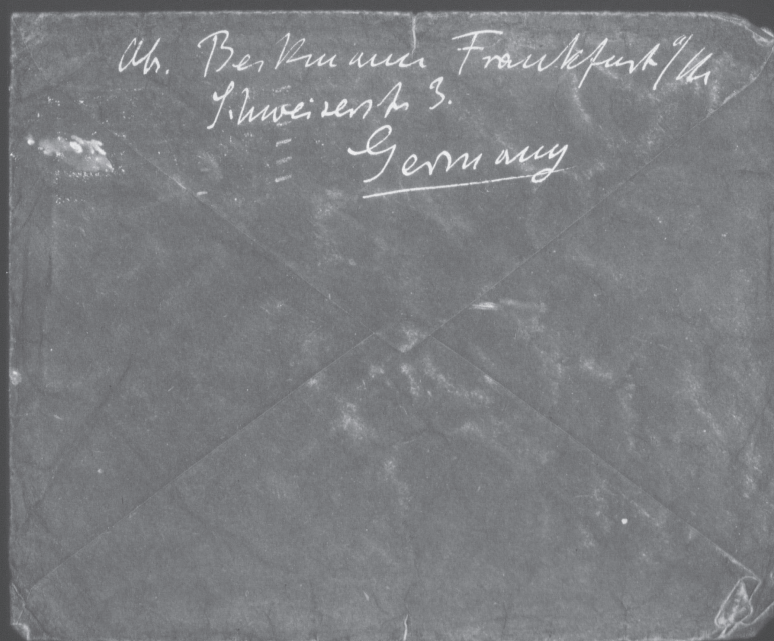 Ab. Beckmann Frankfurt a/M
Schweizerstr 3.
Germany